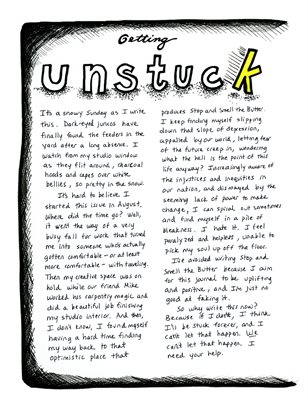 Getting
unstuck
It's a snowy Sunday as I write
this. Dark-eyed juncos have
finally found the feeders in the
yard after a long absence. I
watch from my studio window
as they flit around, charcoal
hoods and capes over white
bellies, so pretty in the snow.
It's hard to believe I
started this issue in August.
Where did the time go? Well,
it went the way of a very
busy fall for work that turned
me into someone who's actually
gotten comfortable - or at least
more comfortable - with traveling.
Then my creative space was on
hold while our friend Mike
worked his carpentry magic and
did a beautiful job finishing
my studio interior. And then,
I don't know, I found myself
having a hard time finding
my way back to that
optimistic place that
produces Stop and Smell the Butter.
I keep finding myself slipping
down that slope of depression,
appalled by our world, letting fear
of the future creep in, wondering
what the hell is the point of this
life anyway? Increasingly aware of
the injustices and inequities in
our nation, and dismayed by the
seeming lack of power to make
change, I can spiral out sometimes
and find myself in a pile of
bleakness. I hate it. I feel
paralyzed and helpless, unable to
pick my soul up off the floor.
I've avoided writing Stop and
Smell the Butter because I aim
for this journal to be uplifting
and positive, and I'm just no
good at faking it.
So why write this now?
Because if I don't, I think
I'll be stuck forever, and I
can't let that happen. We
can't let that happen. I
need your help.